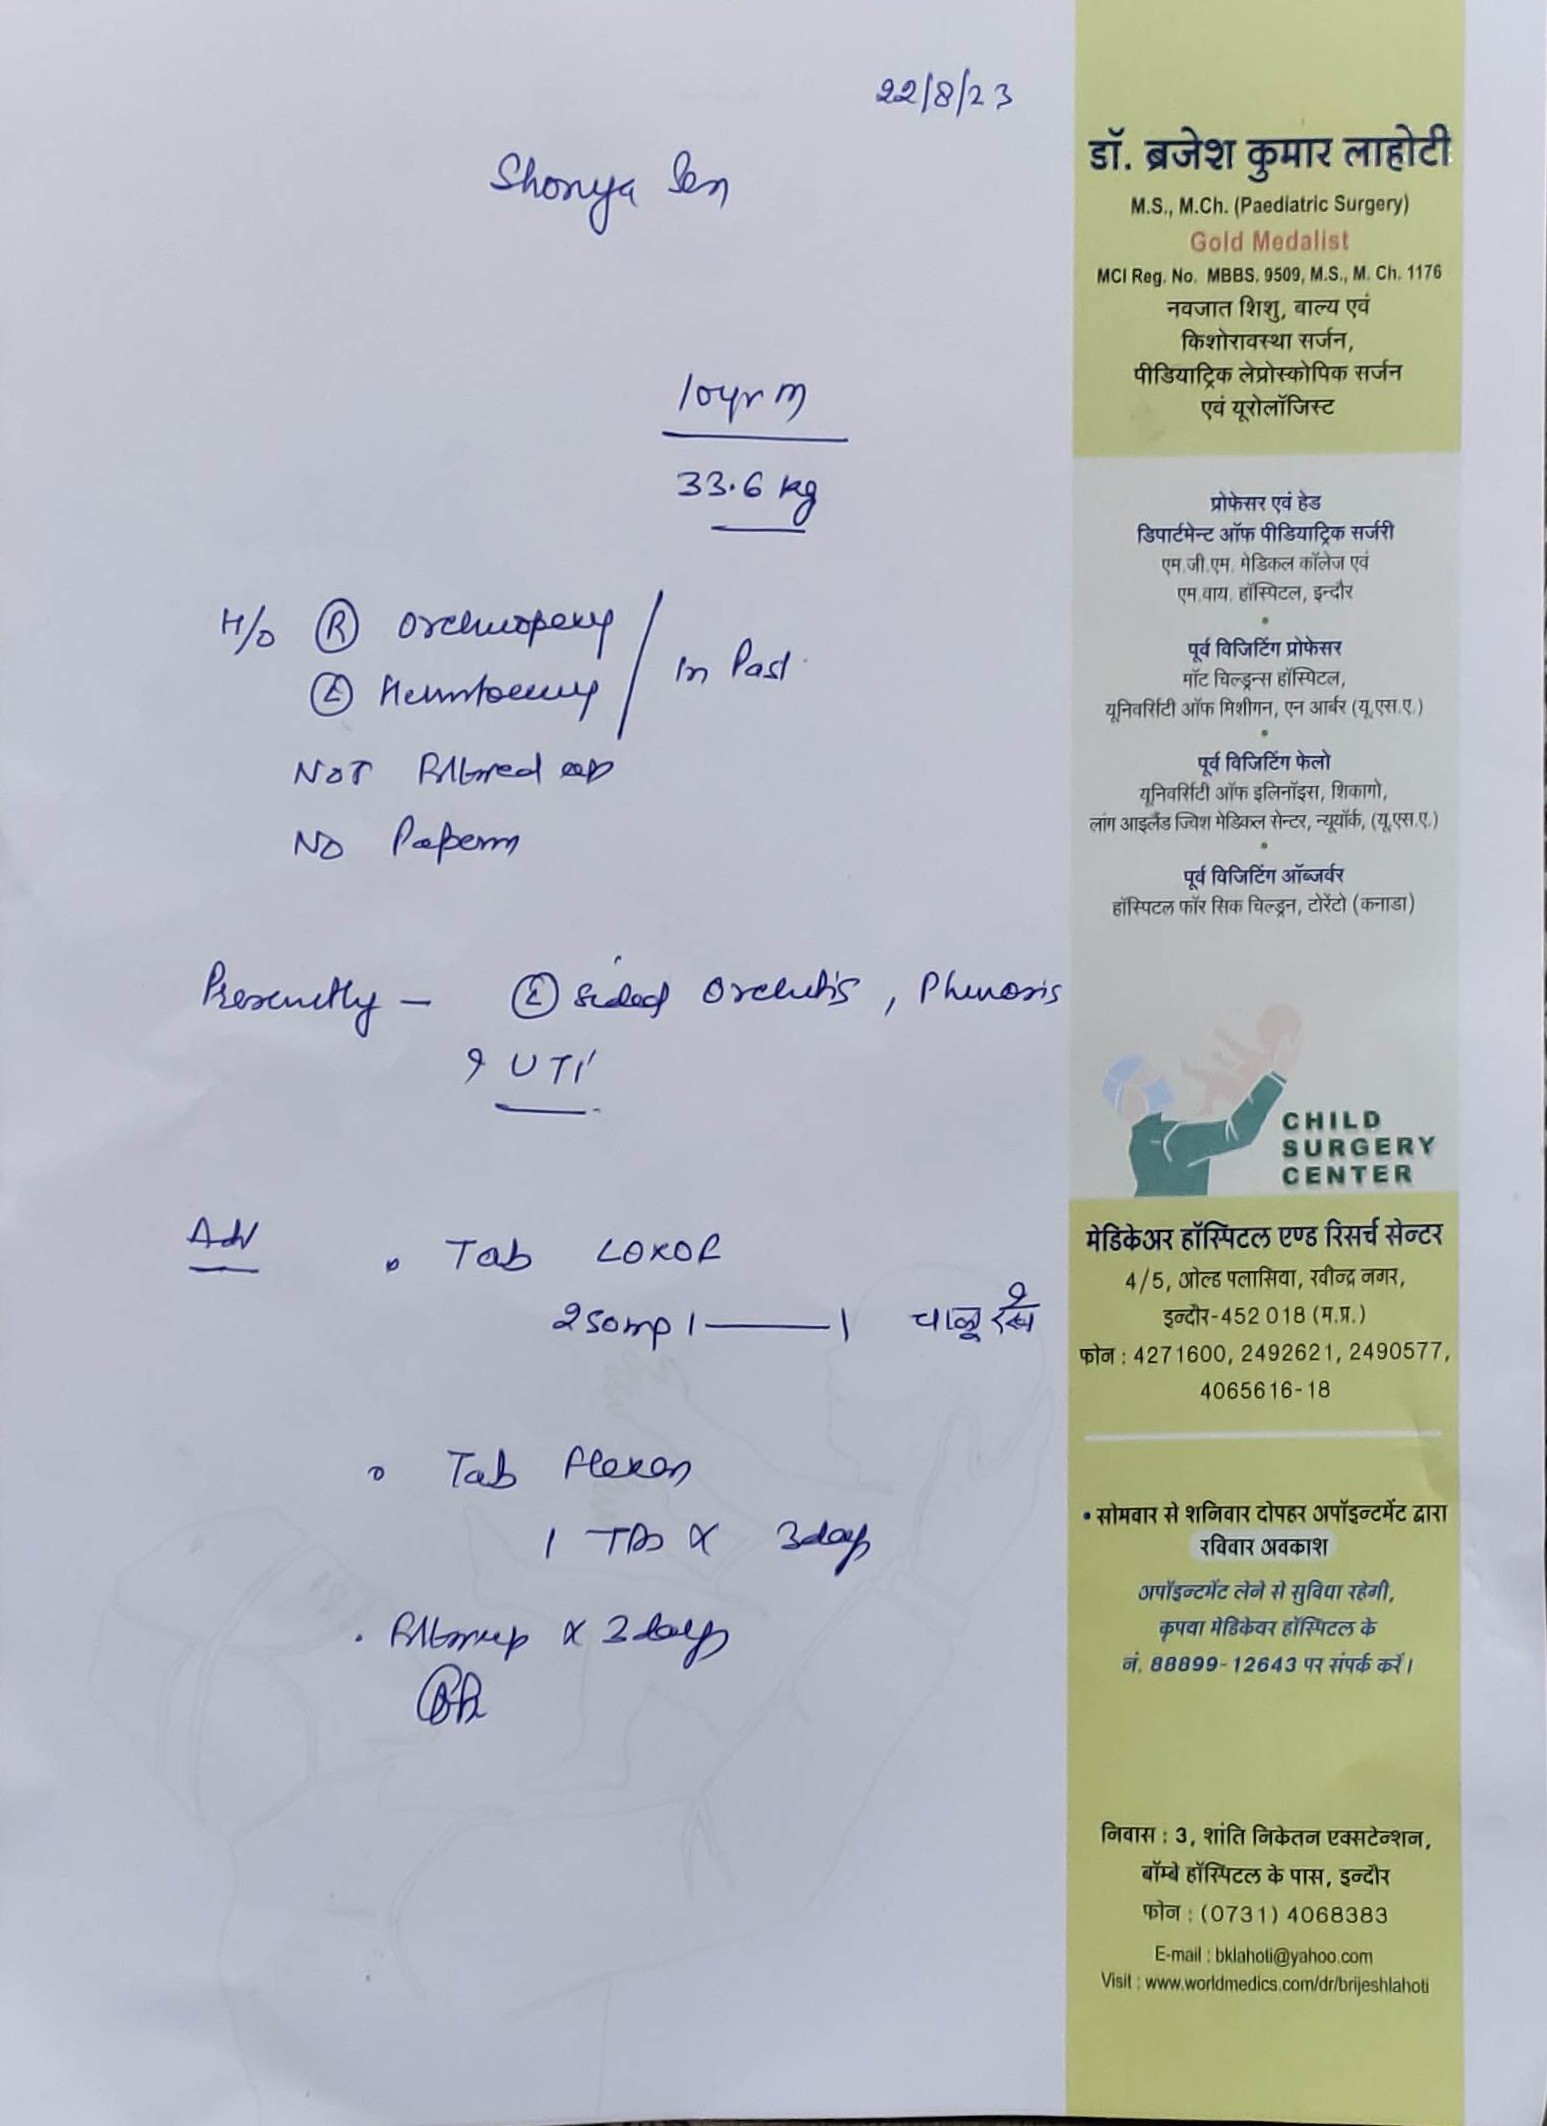 22/8/23
Shonya Sen
10yr m
33.6 kg
H/O Ⓡ Orchiopexy
Ⓛ Herniotomy
In Past
NOT followed up
NO Papers
Presently – Ⓛ sided Orchitis, Phimosis
? UTI
Adv
• Tab LOXOF
250mg 1——1 चालू रखें
• Tab Flexon
1 TDS x 3days
• Followup x 3days
डॉ. ब्रजेश कुमार लाहोटी
M.S., M.Ch. (Paediatric Surgery)
Gold Medalist
MCI Reg. No. MBBS. 9509, M.S., M. Ch. 1176
नवजात शिशु, बाल्य एवं
किशोरावस्था सर्जन,
पीडियाट्रिक लेप्रोस्कोपिक सर्जन
एवं यूरोलॉजिस्ट
प्रोफेसर एवं हेड
डिपार्टमेन्ट ऑफ पीडियाट्रिक सर्जरी
एम.जी.एम. मेडिकल कॉलेज एवं
एम.वाय. हॉस्पिटल, इन्दौर
•
पूर्व विजिटिंग प्रोफेसर
मॉट चिल्ड्रन्स हॉस्पिटल,
यूनिवर्सिटी ऑफ मिशीगन, एन आर्बर (यू.एस.ए.)
•
पूर्व विजिटिंग फेलो
यूनिवर्सिटी ऑफ इलिनॉइस, शिकागो,
लांग आइलैंड ज्विश मेडिकल सेन्टर, न्यूयॉर्क, (यू.एस.ए.)
•
पूर्व विजिटिंग ऑब्जर्वर
हॉस्पिटल फॉर सिक चिल्ड्रन, टोरेंटो (कनाडा)
CHILD
SURGERY
CENTER
मेडिकेअर हॉस्पिटल एण्ड रिसर्च सेन्टर
4/5, ओल्ड पलासिया, रवीन्द्र नगर,
इन्दौर-452 018 (म.प्र.)
फोन : 4271600, 2492621, 2490577,
4065616-18
• सोमवार से शनिवार दोपहर अपॉइन्टमेंट द्वारा
रविवार अवकाश
अपॉइन्टमेंट लेने से सुविधा रहेगी,
कृपया मेडिकेयर हॉस्पिटल के
नं. 88899-12643 पर संपर्क करें।
निवास : 3, शांति निकेतन एक्सटेन्शन,
बॉम्बे हॉस्पिटल के पास, इन्दौर
फोन : (0731) 4068383
E-mail : bklahoti@yahoo.com
Visit : www.worldmedics.com/dr/brijeshlahoti